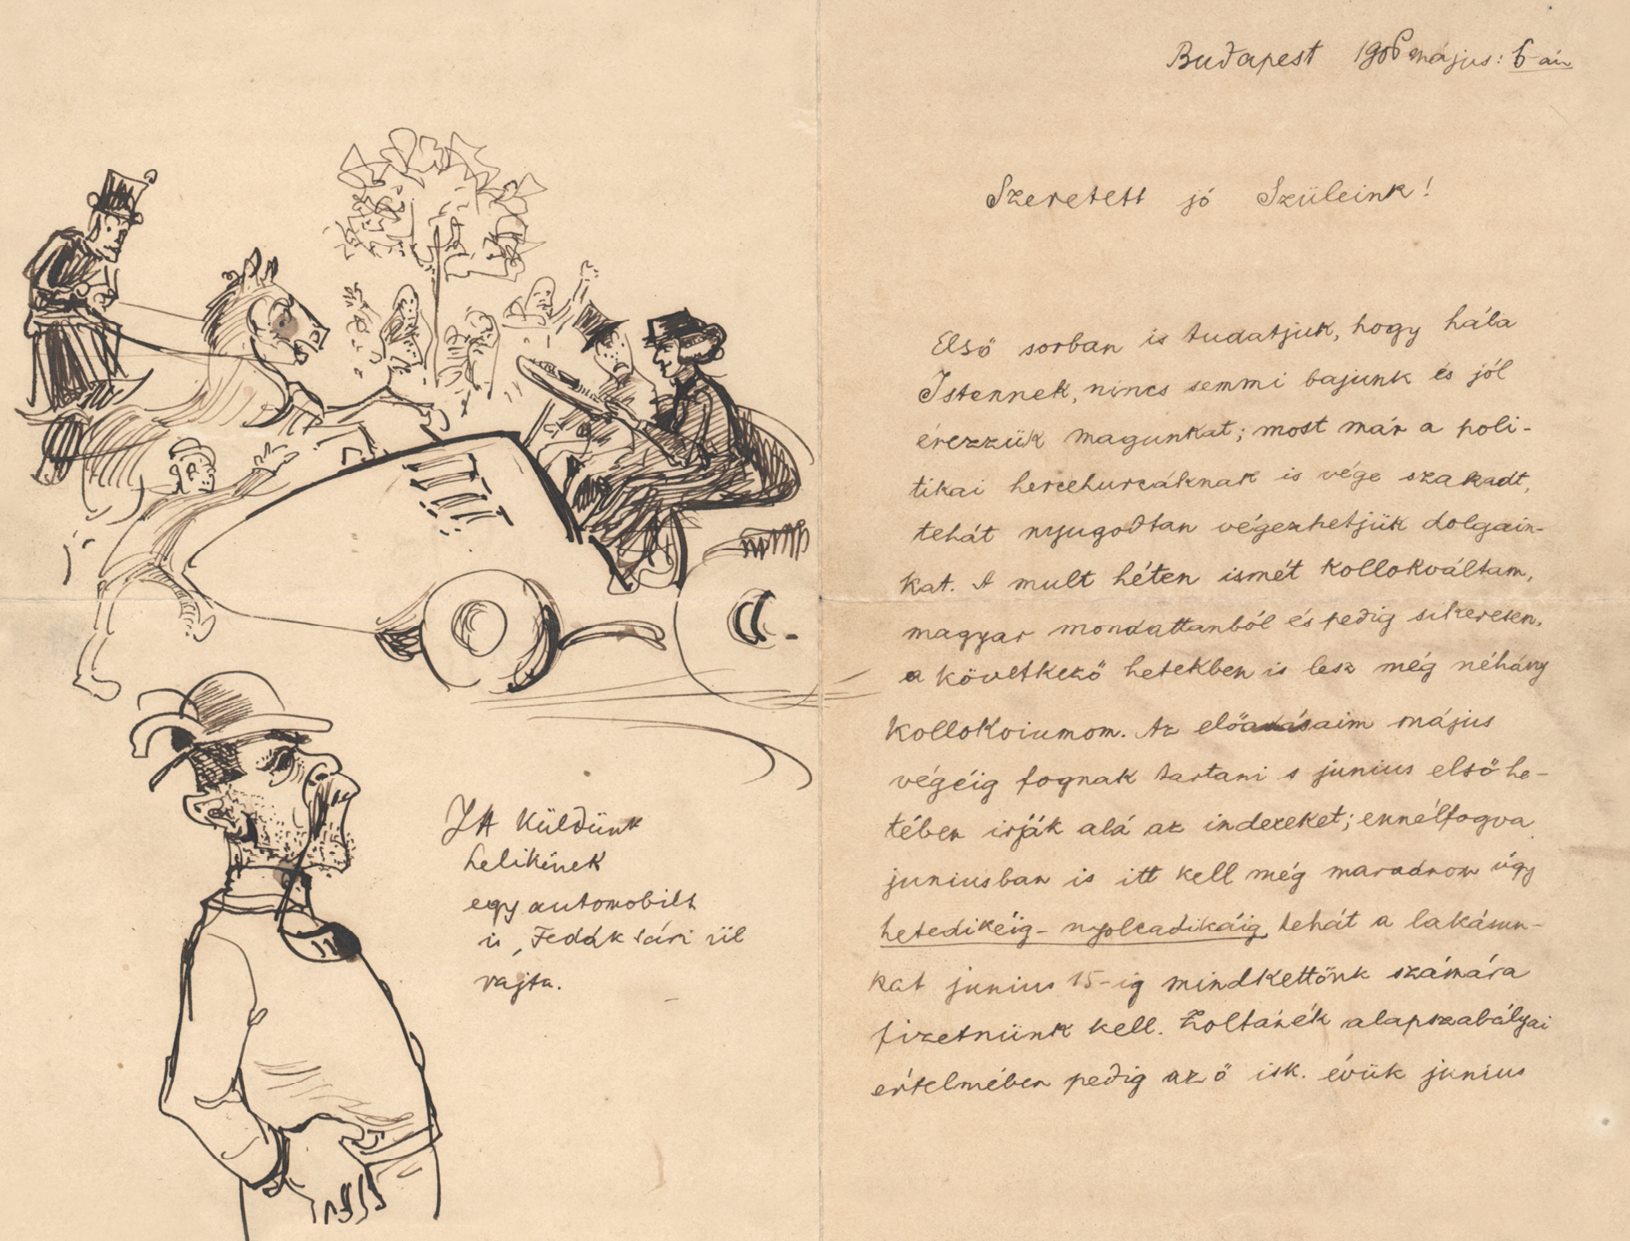 Itt küldünk
Lelikének
egy automobilt
is, Fedák Sári ül
rajta.
Budapest 1906 május: 6-án
Szeretett jó Szüleink!
Első sorban is tudatjuk, hogy hála
Istennek, nincs semmi bajunk és jól
érezzük magunkat; most már a poli-
tikai hercehurcáknak is vége szakadt,
tehát nyugodtan végezhetjük dolgain-
kat. A mult héten ismét kollokváltam,
magyar mondattanból és pedig sikeresen,
a következő hetekben is lesz még néhány
kollokviumom. Az előadásaim május
végéig fognak tartani s junius első he-
tében irják alá az indexeket; ennélfogva
juniusban is itt kell még maradnom úgy
hetedikéig-nyolcadikáig, tehát a lakásun-
kat junius 15-ig mindkettőnk számára
fizetnünk kell. Zoltánék alapszabályai
értelmében pedig az ő isk. évük junius